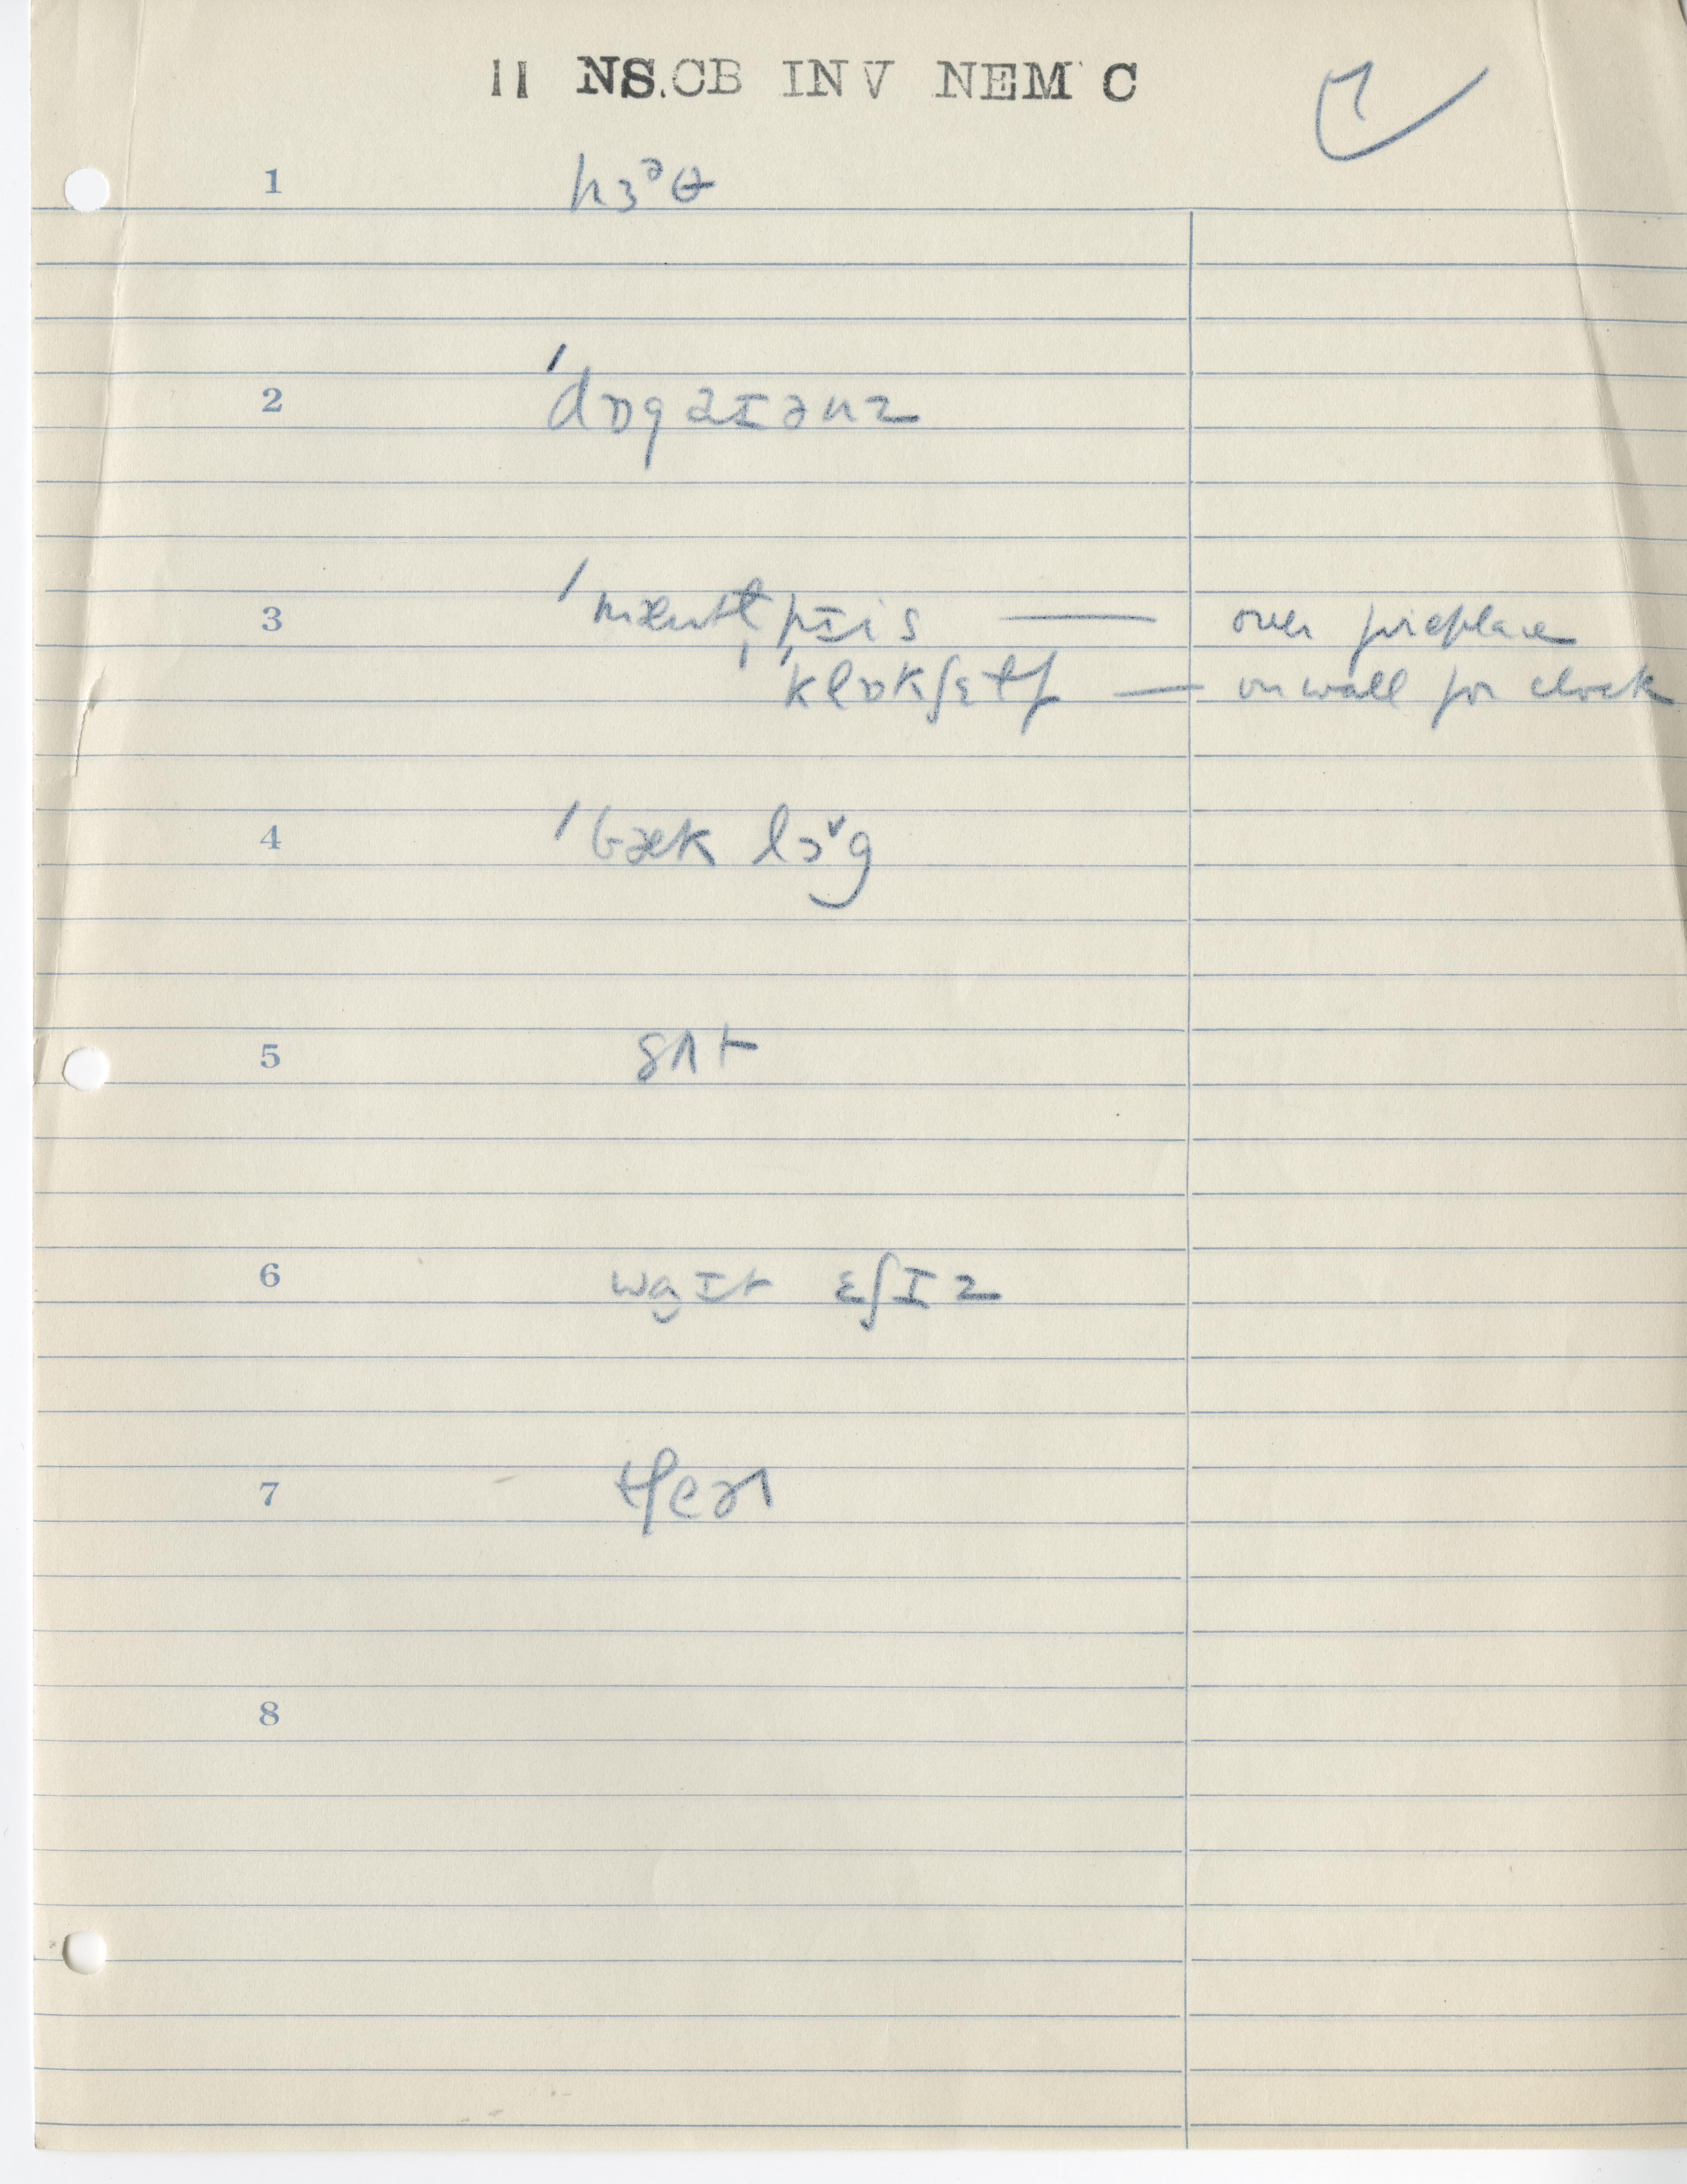 11 NS.CB INV NEM C 7
1 hɜᵊθ
2 ˈdɒgaɪənz
3 ˈmæntl̩pɪis — over fireplace
ˈklɒkʃɛlf — on wall for clock
4 ˈbæk lɔ˅g
5 sʌt
6 wa̮ɪt ɛʃɪz
7 tʃeə˞
8